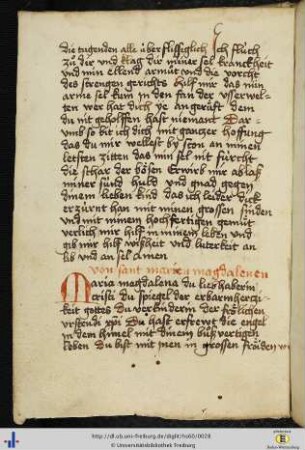 die tugenden alle überflissiglich Ich fluch
zu dir und klag dir miner sel kranckheit
und min ellend armut und die vorcht
des strengen gerichtz hilf mir das min
arme sel kum in den fal der usserwel-
ten wer hat dich ye angerüft dem
du nit geholffen hast niemant Dar-
umb so bit ich dich mit gantzer hoffung
das du mir wellest by ston an minen
leesten zitten das min sel nit fürcht
die schar der bösen Erwirb mir ablas
miner sünd huld und gnad gegen
dinem lieben kind das ich leider dick
erzürnt han mit minen grossen sünden
und mit minem hochfertigen gemüt
verlich mir hilf in minem leben und
gib mir hilf wisheit und luterkeit an
lib und an sel Amen
von sant marien magdalenen
Maria magdalena du lieb haberin
cristi du spiegel der erbarmhertzi-
keit gottes du verkünderin der frölichen
urstendi xpi Du hast erfrewt die engel
in dem himel mit dinem buß vertigen
leben Du bist mit inen in grossen fröiden
http://dl.ub.uni-freiburg.de/diglit/hs60/0028
© Universitätsbibliothek Freiburg